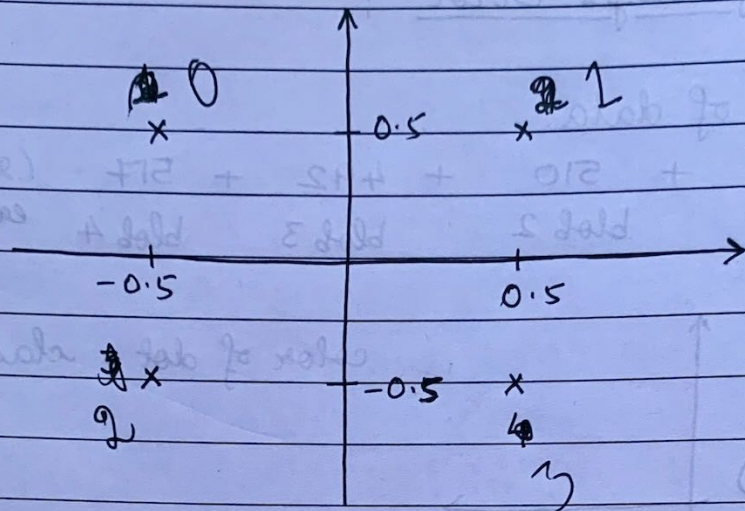 0 1
0.5
-0.5 0.5
-0.5
2
3